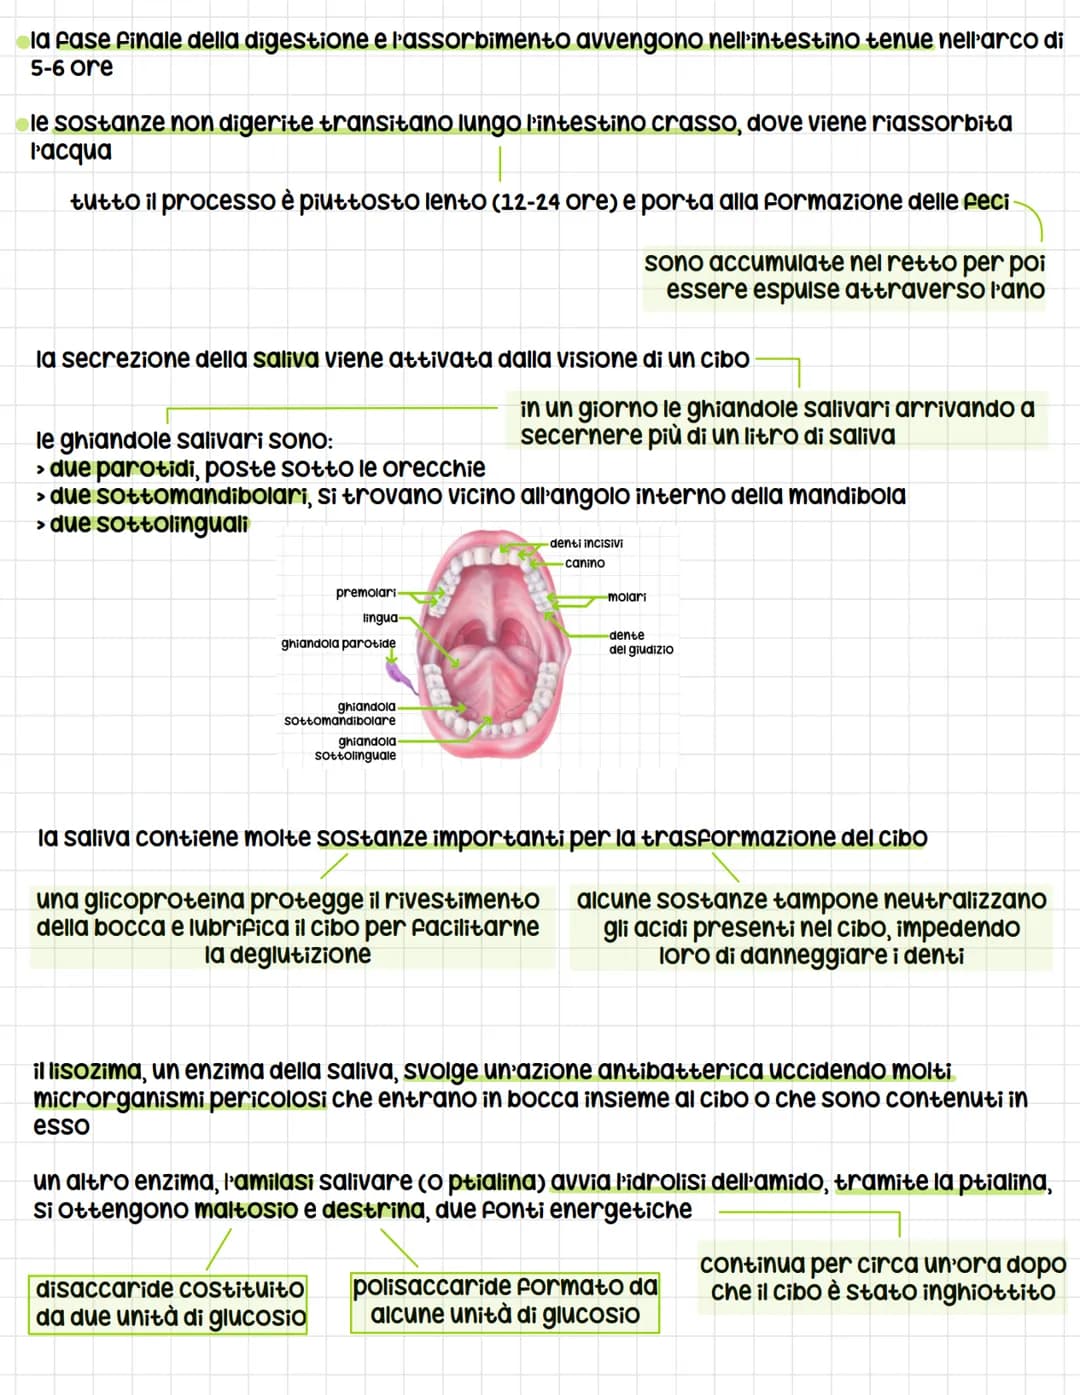 la fase finale della digestione e l'assorbimento avvengono nell'intestino tenue nell'arco di
5-6 ore
le sostanze non digerite transitano lungo l'intestino crasso, dove viene riassorbita
l'acqua
tutto il processo è piuttosto lento (12-24 ore) e porta alla formazione delle feci
sono accumulate nel retto per poi
essere espulse attraverso l'ano
la secrezione della saliva viene attivata dalla visione di un cibo
in un giorno le ghiandole salivari arrivando a
secernere più di un litro di saliva
le ghiandole salivari sono:
> due parotidi, poste sotto le orecchie
> due sottomandibolari, si trovano vicino all'angolo interno della mandibola
> due sottolinguali
denti incisivi
canino
premolari
molari
lingua
dente
del giudizio
ghiandola parotide
ghiandola
sottomandibolare
ghiandola
sottolinguale
la saliva contiene molte sostanze importanti per la trasformazione del cibo
una glicoproteina protegge il rivestimento
della bocca e lubrifica il cibo per facilitarne
la deglutizione
alcune sostanze tampone neutralizzano
gli acidi presenti nel cibo, impedendo
loro di danneggiare i denti
il lisozima, un enzima della saliva, svolge un'azione antibatterica uccidendo molti
microrganismi pericolosi che entrano in bocca insieme al cibo o che sono contenuti in
esso
un altro enzima, l'amilasi salivare (o ptialina) avvia l'idrolisi dell'amido, tramite la ptialina,
si ottengono maltosio e destrina, due fonti energetiche
continua per circa un'ora dopo
che il cibo è stato inghiottito
disaccaride costituito
da due unità di glucosio
polisaccaride formato da
alcune unità di glucosio